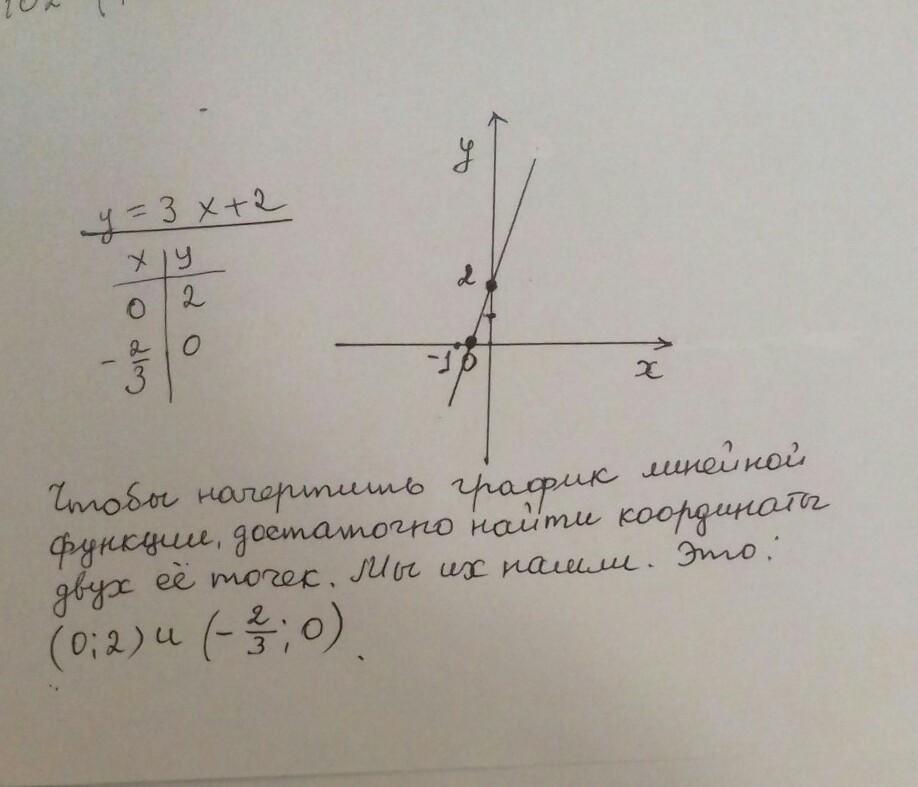 y = 3 x + 2
x | y
0 | 2
- 2/3 | 0
y
2
-1 0
x
Чтобы начертить график линейной
функции, достаточно найти координаты
двух её точек. Мы их нашли. Это:
(0; 2) и (- 2/3; 0)